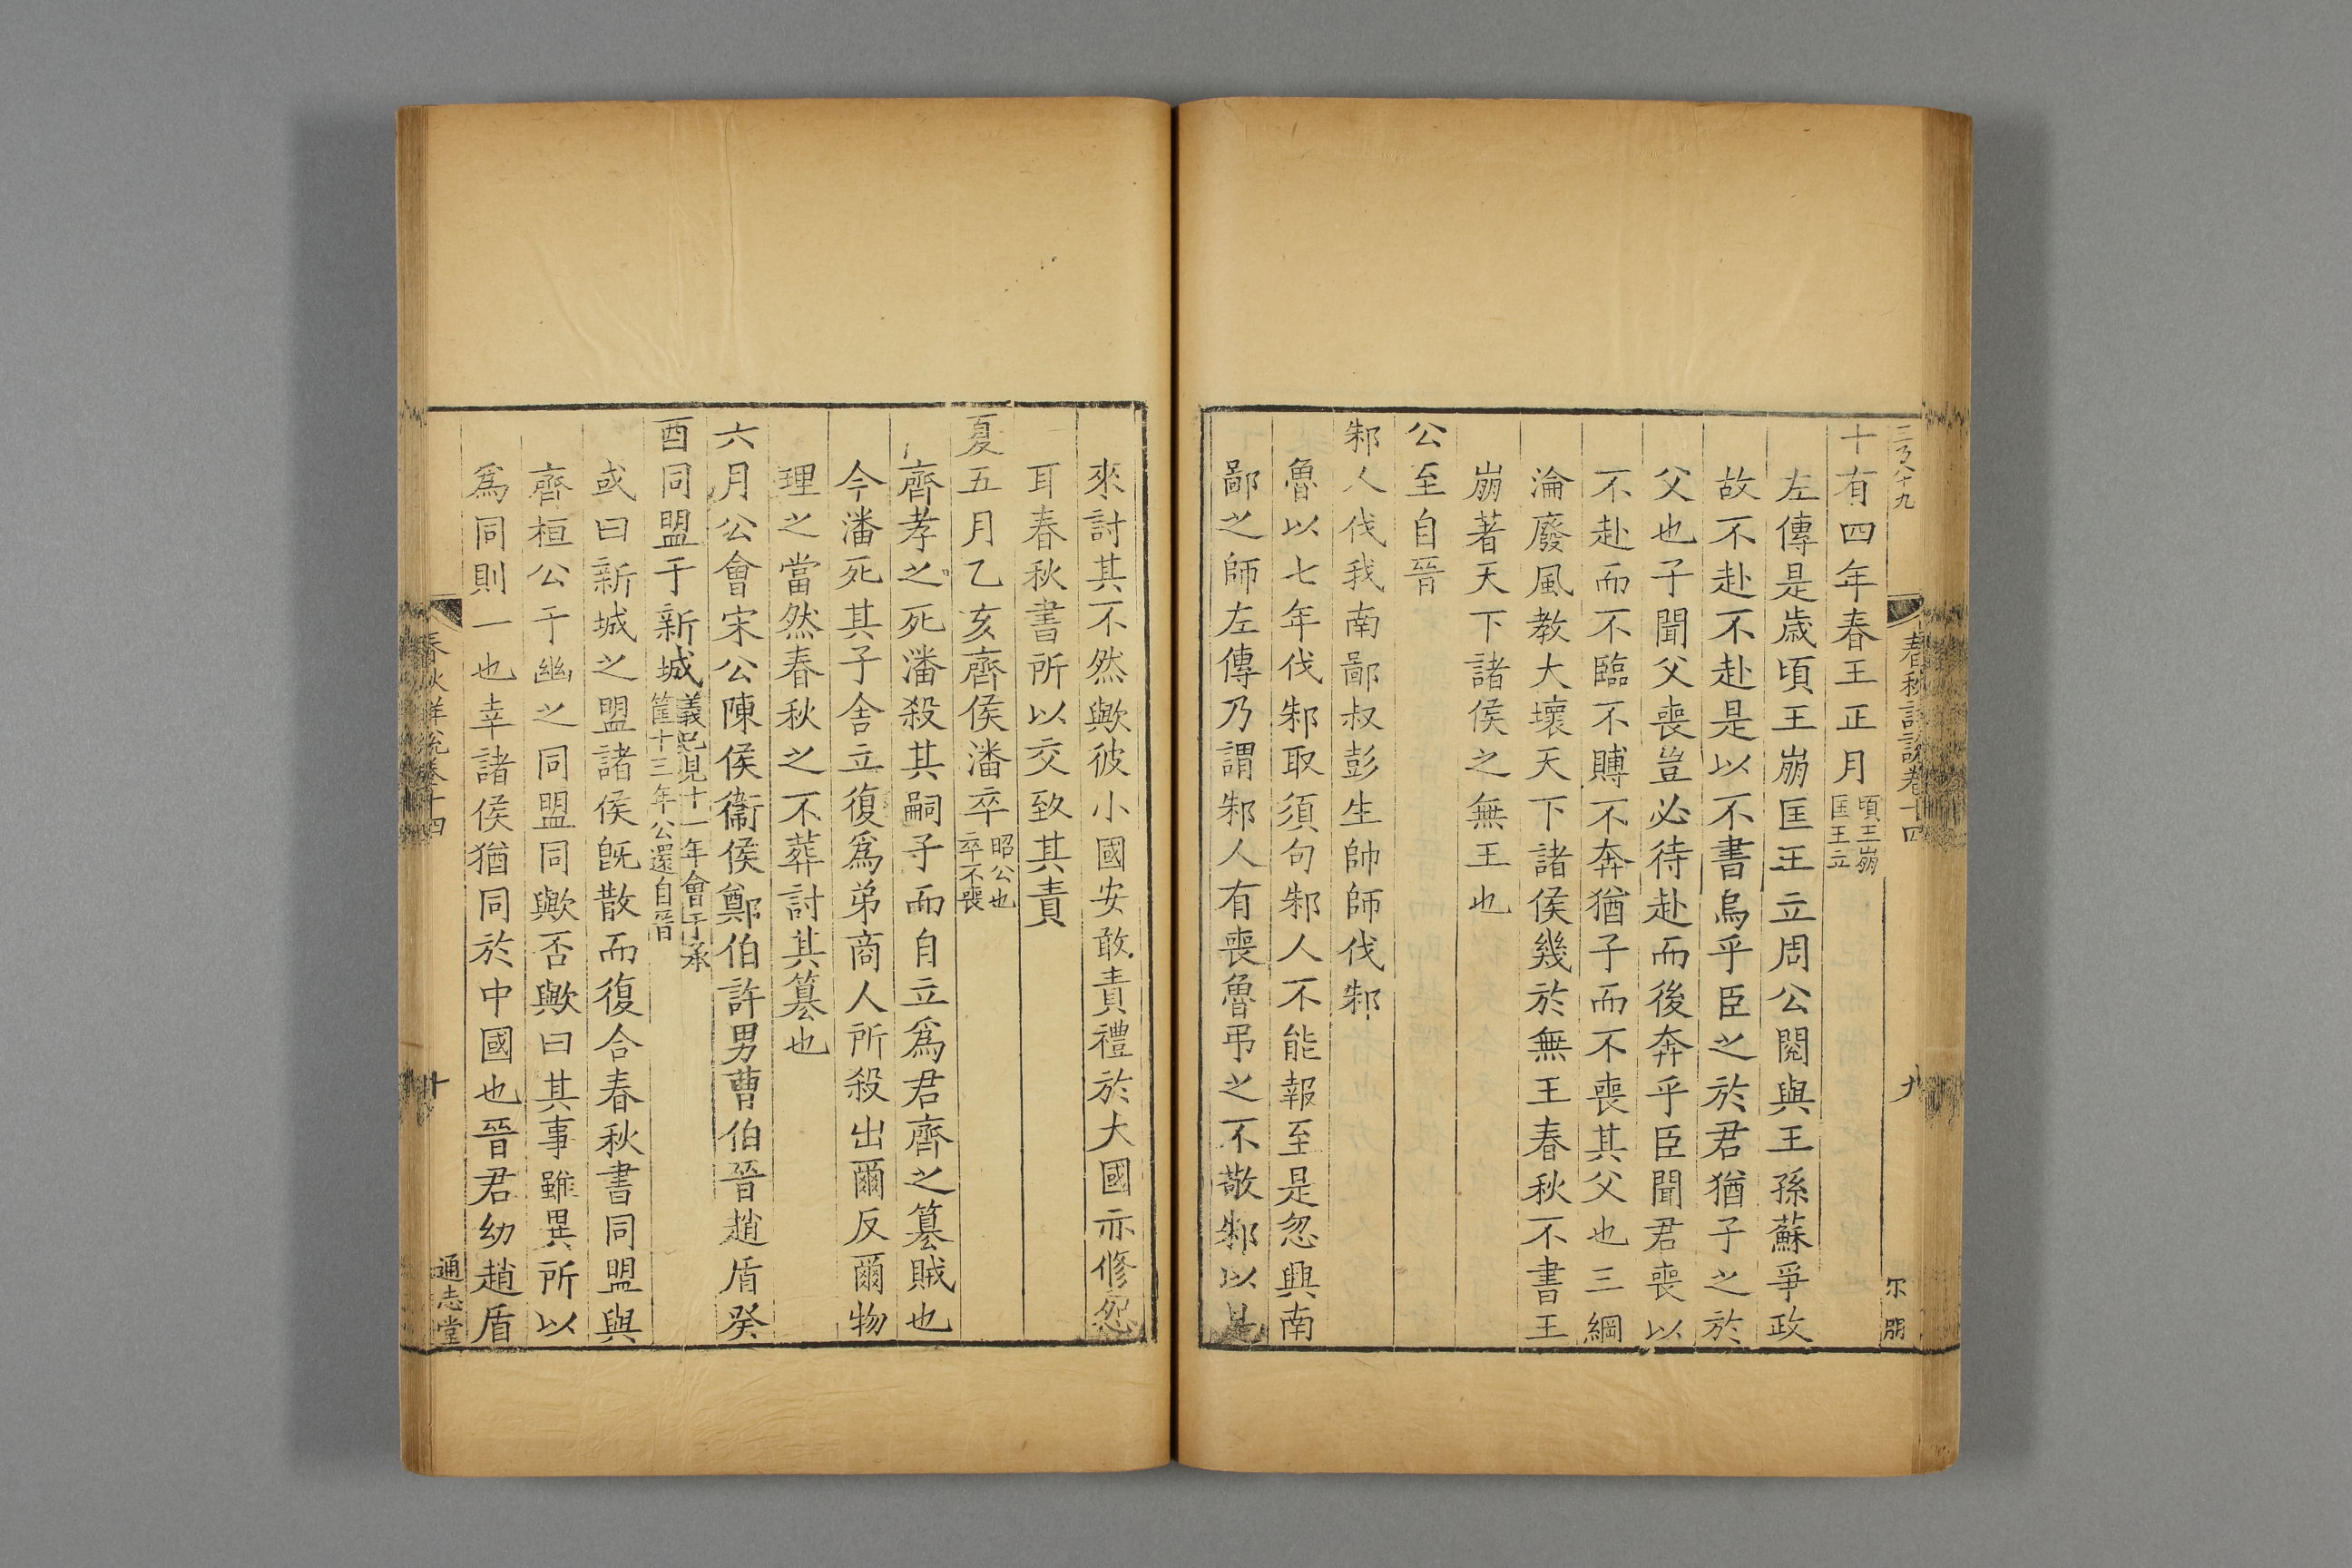 三百八十九
春秋詳說卷十四
九
尔朋
十有四年春王正月頃王崩匡王立
左傳是歲頃王崩匡王立周公閱與王孫蘇爭政
故不赴不赴是以不書烏乎臣之於君猶子之於
父也子聞父喪豈必待赴而後奔乎臣聞君喪以
不赴而不臨不賻不奔猶子而不喪其父也三綱
淪廢風教大壞天下諸侯幾於無王春秋不書王
崩著天下諸侯之無王也
公至自晉
邾人伐我南鄙叔彭生帥師伐邾
魯以七年伐邾取須句邾人不能報至是忽興南
鄙之師左傳乃謂邾人有喪魯弔之不敬邾以是
來討其不然歟彼小國安敢責禮於大國亦修怨
耳春秋書所以交致其責
夏五月乙亥齊侯潘卒昭公也卒不喪
齊孝之死潘殺其嗣子而自立爲君齊之篡賊也
今潘死其子舍立復爲弟商人所殺出爾反爾物
理之當然春秋之不葬討其篡也
六月公會宋公陳侯衞侯鄭伯許男曹伯晉趙盾癸
酉同盟于新城義已見十一年會于承筐十三年公還自晉
或曰新城之盟諸侯旣散而復合春秋書同盟與
齊桓公于幽之同盟同歟否歟曰其事雖異所以
爲同則一也幸諸侯猶同於中國也晉君幼趙盾
春秋詳說卷十四
十
通志堂